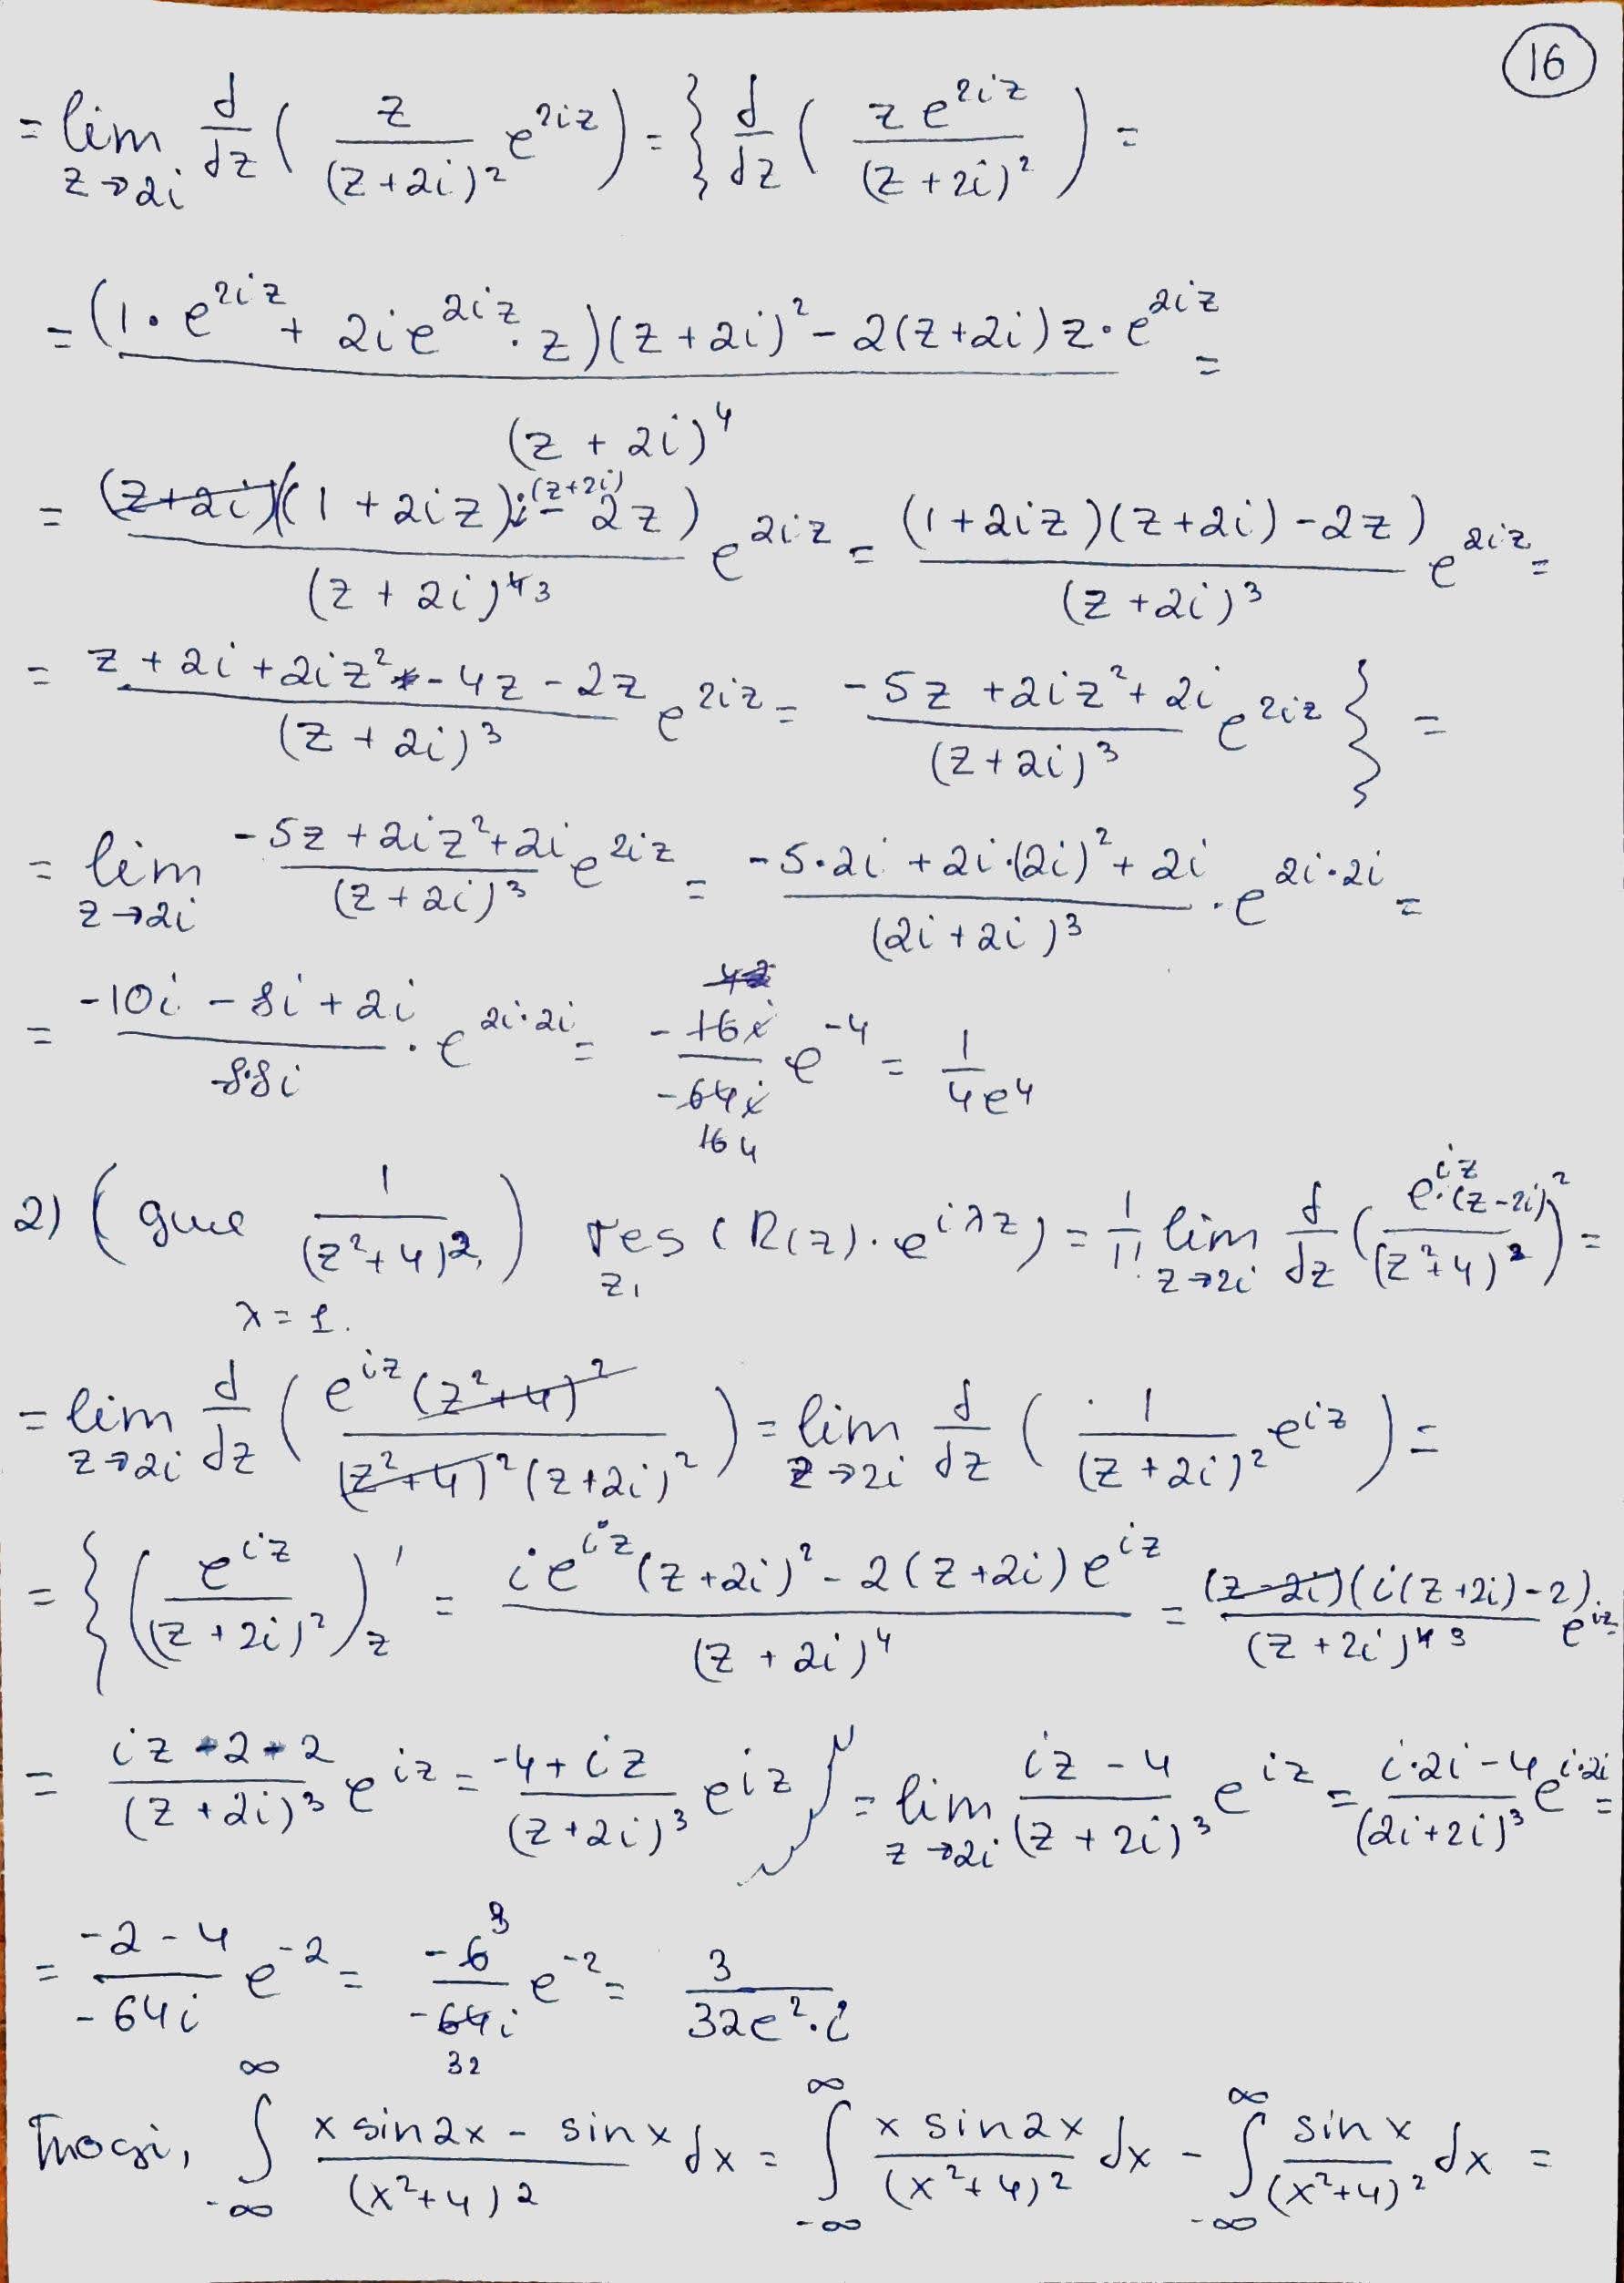 16
= lim_{z→2i} d/dz ( z/(z+2i)² e^{2iz} ) = { d/dz ( z e^{2iz}/(z+2i)² ) =
= (1·e^{2iz} + 2ie^{2iz}·z)(z+2i)² - 2(z+2i)z·e^{2iz} / (z+2i)⁴ =
= (z+2i)((1+2iz)·(z+2i) - 2z) / (z+2i)³ e^{2iz} = (1+2iz)(z+2i) - 2z) / (z+2i)³ e^{2iz} =
= z+2i+2iz² - 4z - 2z / (z+2i)³ e^{2iz} = -5z+2iz²+2i / (z+2i)³ e^{2iz} } =
= lim_{z→2i} -5z+2iz²+2i / (z+2i)³ e^{2iz} = -5·2i+2i·(2i)²+2i / (2i+2i)³ · e^{2i·2i} =
= -10i - 8i + 2i / -8·8i · e^{2i·2i} = -16i / -64i e^{-4} = 1/4e⁴
16 4
2) (для 1/(z²+4)²) res_{z₁} (R(z)·e^{iλz}) = 1/1! lim_{z→2i} d/dz ( e^{iz}·(z-2i)² / (z²+4)² ) =
λ = 1.
= lim_{z→2i} d/dz ( e^{iz}(z²+4)² / (z²+4)²(z+2i)² ) = lim_{z→2i} d/dz ( 1/(z+2i)² e^{iz} ) =
= { ( e^{iz}/(z+2i)² )'_z = ie^{iz}(z+2i)² - 2(z+2i)e^{iz} / (z+2i)⁴ = (z-2i)(i(z+2i)-2) / (z+2i)³ · e^{iz} =
= iz-2-2 / (z+2i)³ e^{iz} = -4+iz / (z+2i)³ e^{iz} } = lim_{z→2i} iz-4 / (z+2i)³ e^{iz} = i·2i-4 / (2i+2i)³ e^{i·2i} =
= -2-4 / -64i e^{-2} = -6 3 / -64i 32 e^{-2} = 3 / 32e²·i
Тоді, ∫_{-∞}^{∞} x sin2x - sinx / (x²+4)² dx = ∫_{-∞}^{∞} x sin2x / (x²+4)² dx - ∫_{-∞}^{∞} sinx / (x²+4)² dx =